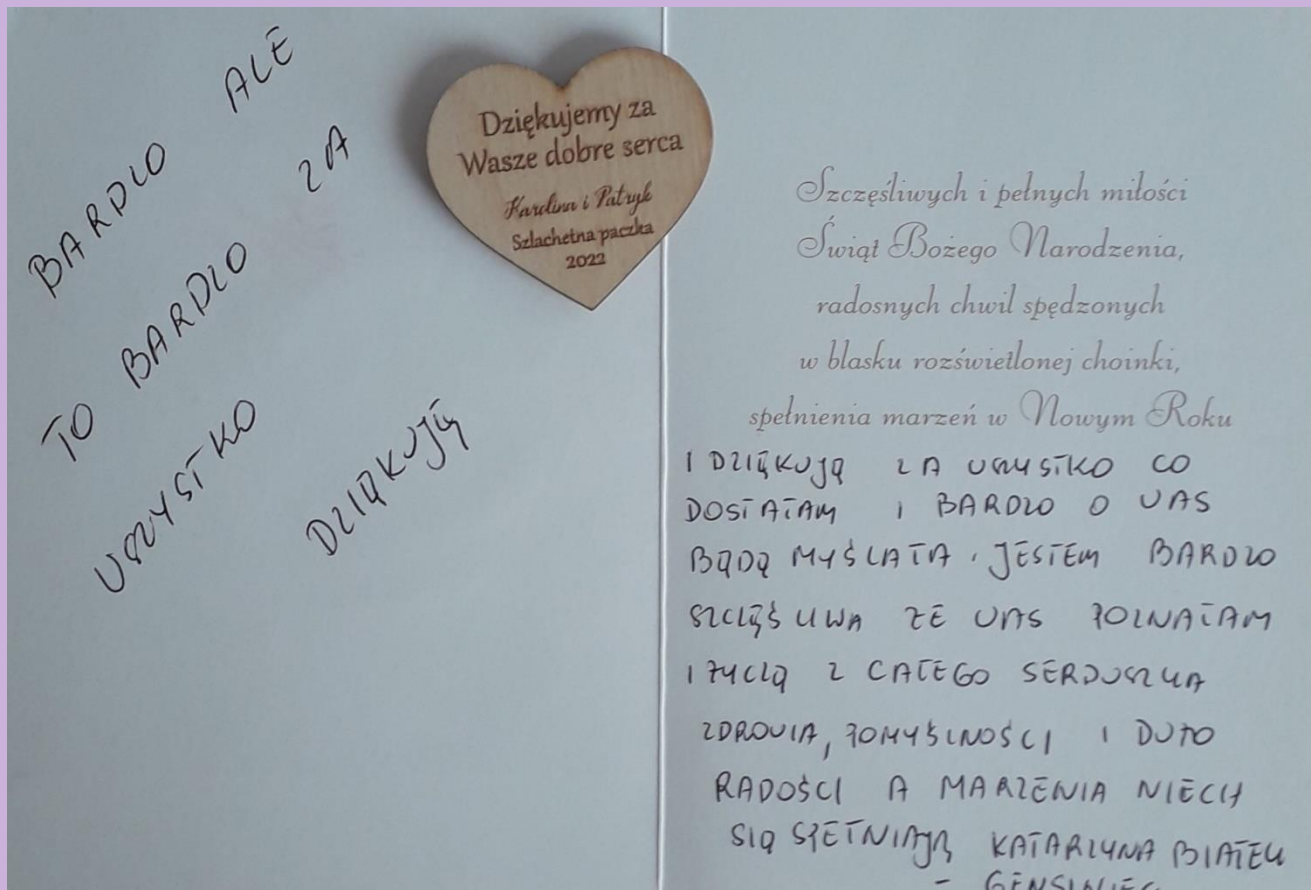 BARDZO ALE
TO BARDZO ZA
WSZYSTKO
DZIĘKUJĘ
Dziękujemy za
Wasze dobre serca
Karolina i Patryk
Szlachetna paczka
2022
Szczęśliwych i pełnych miłości
Świąt Bożego Narodzenia,
radosnych chwil spędzonych
w blasku rozświetlonej choinki,
spełnienia marzeń w Nowym Roku
I DZIĘKUJĘ ZA WSZYSTKO CO
DOSTAŁAM I BARDZO O WAS
BĘDĘ MYŚLAŁA. JESTEM BARDZO
SZCZĘŚLIWA ŻE WAS POZNAŁAM
I ŻYCZĘ Z CAŁEGO SERDUSZKA
ZDROWIA, POMYŚLNOŚCI I DUŻO
RADOŚCI A MARZENIA NIECH
SIĘ SPEŁNIAJĄ KATARZYNA BIAŁEK